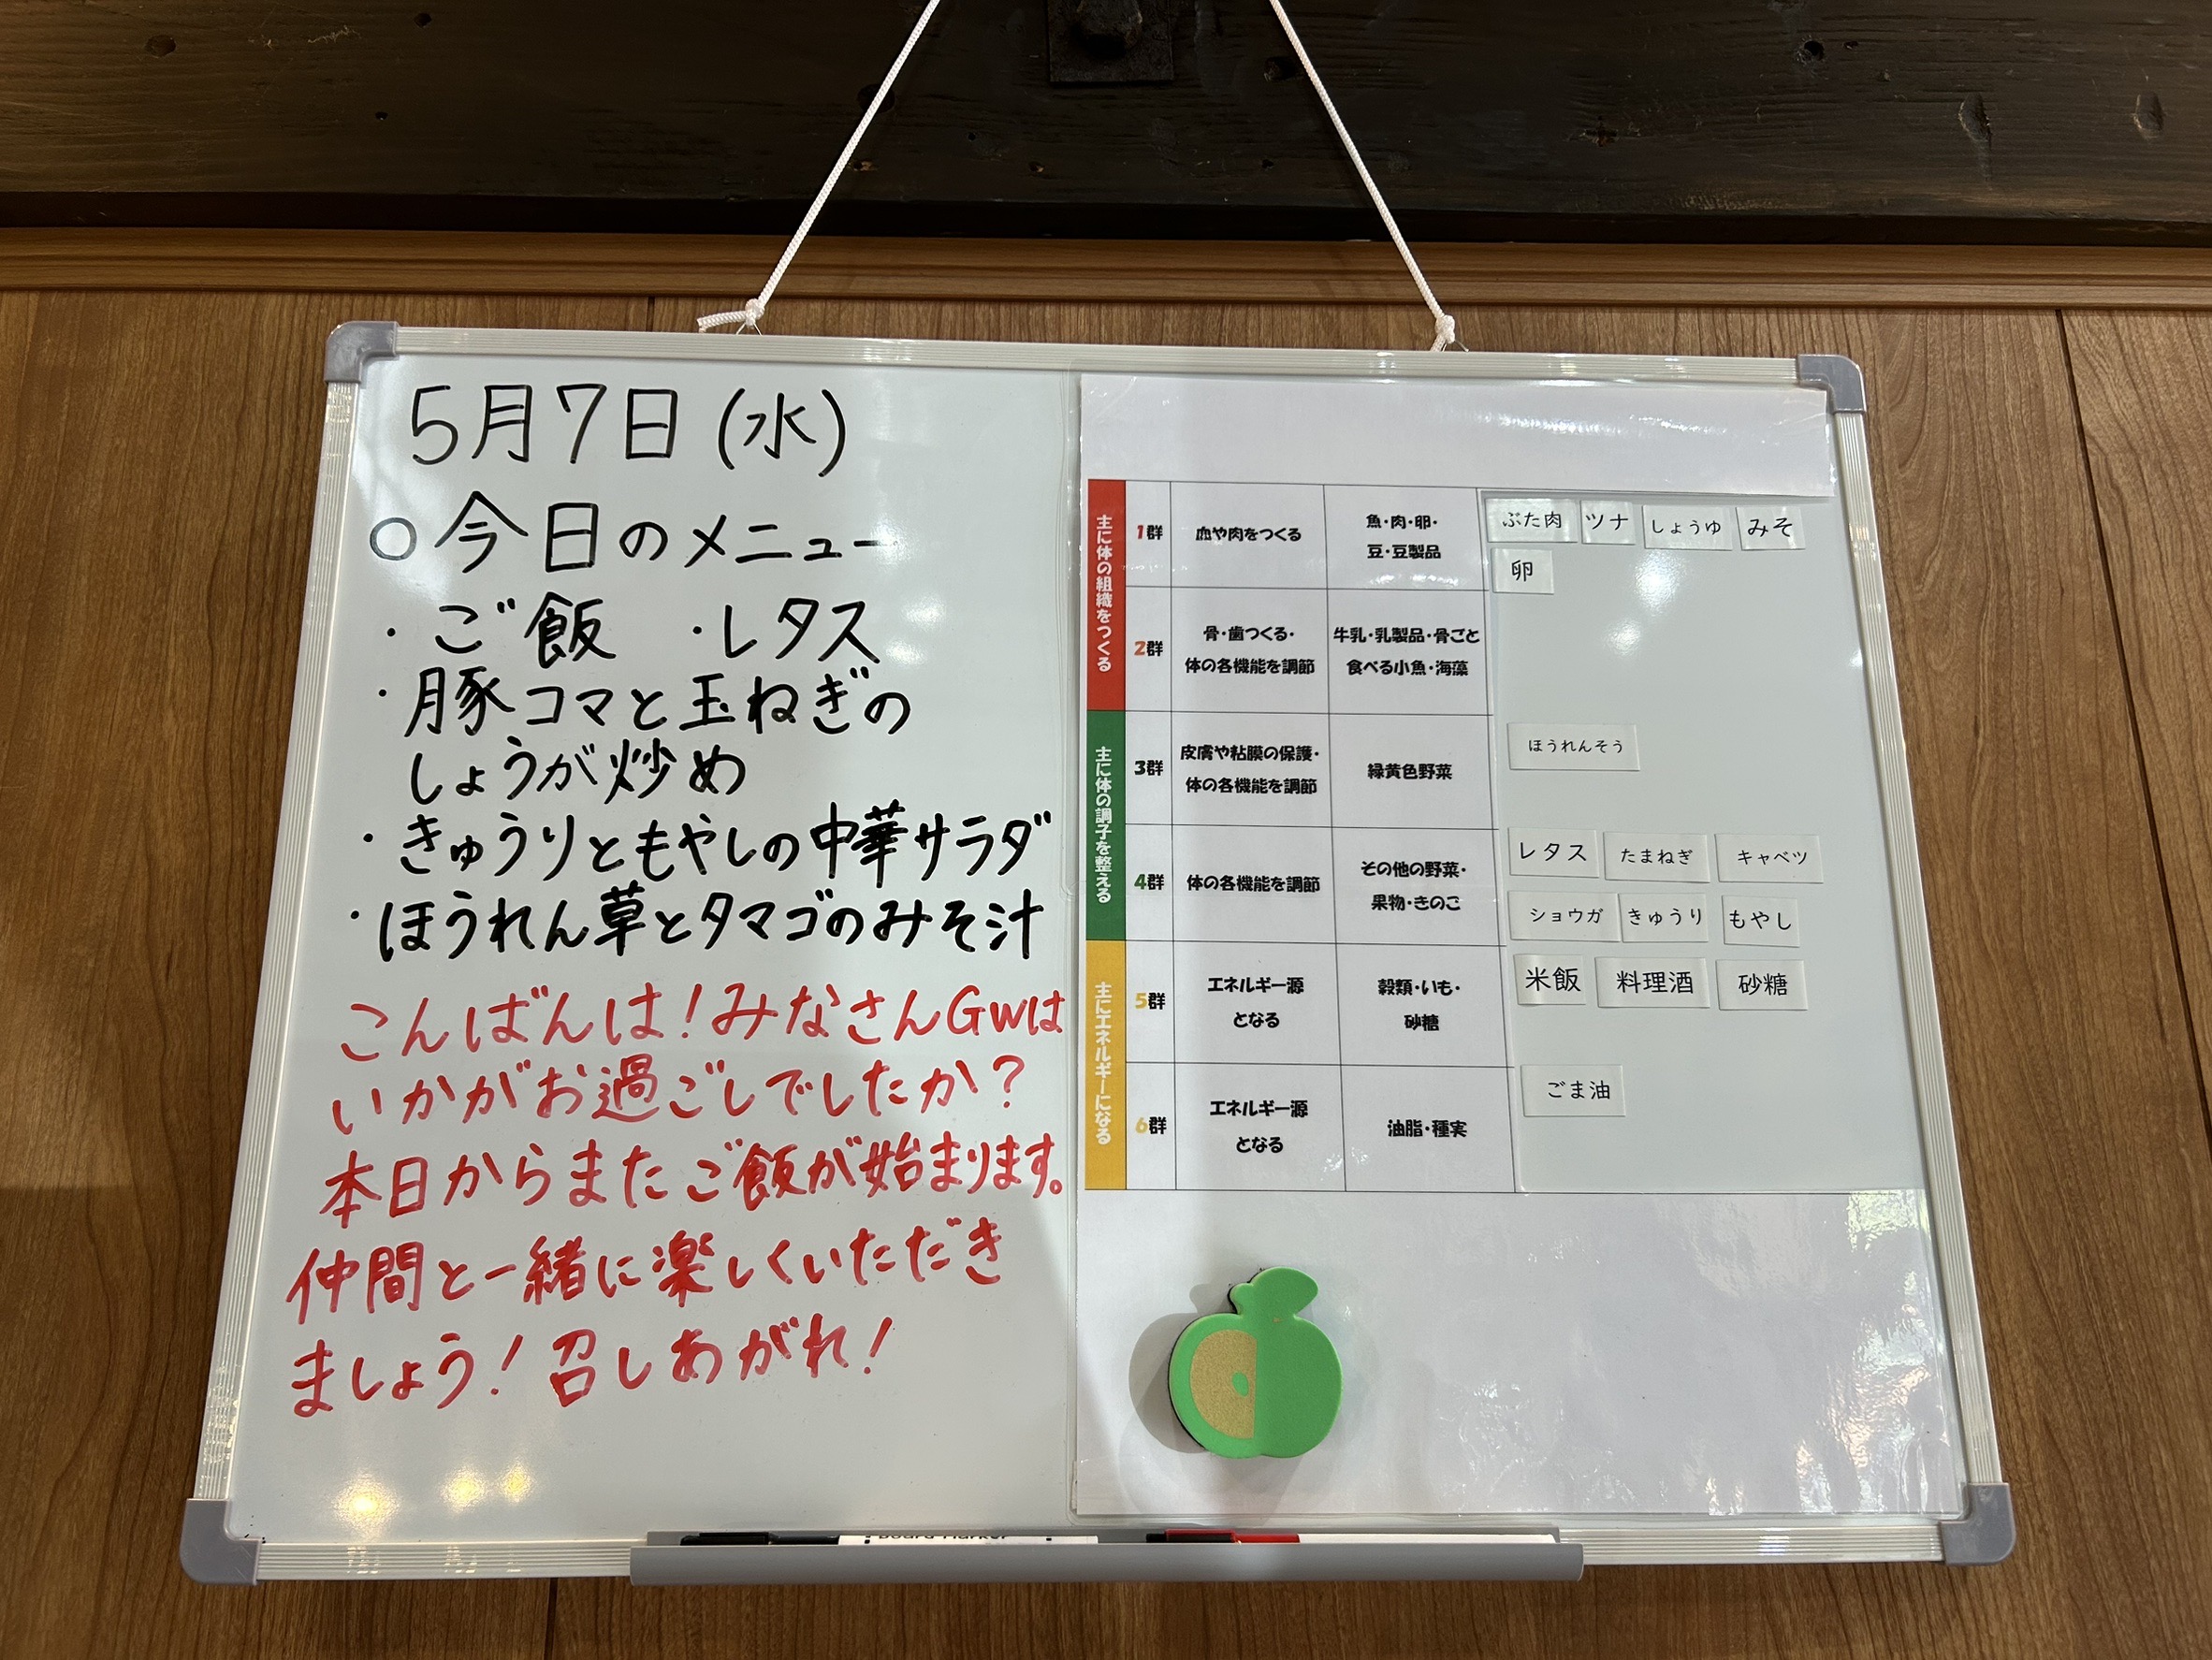 5月7日(水)
○今日のメニュー
・ご飯 ・レタス
・豚コマと玉ねぎの
しょうが炒め
・きゅうりともやしの中華サラダ
・ほうれん草とタマゴのみそ汁
こんばんは!みなさんGWは
いかがお過ごしでしたか?
本日からまたご飯が始まります。
仲間と一緒に楽しくいただき
ましょう!召しあがれ!
主に体の組織をつくる
1群
血や肉をつくる
魚・肉・卵・
豆・豆製品
ぶた肉 ツナ しょうゆ みそ
卵
2群
骨・歯つくる・
体の各機能を調節
牛乳・乳製品・骨ごと
食べる小魚・海藻
主に体の調子を整える
3群
皮膚や粘膜の保護・
体の各機能を調節
緑黄色野菜
ほうれんそう
4群
体の各機能を調節
その他の野菜・
果物・きのこ
レタス たまねぎ キャベツ
ショウガ きゅうり もやし
主にエネルギーになる
5群
エネルギー源
となる
穀類・いも・
砂糖
米飯 料理酒 砂糖
6群
エネルギー源
となる
油脂・種実
ごま油
Board Marker